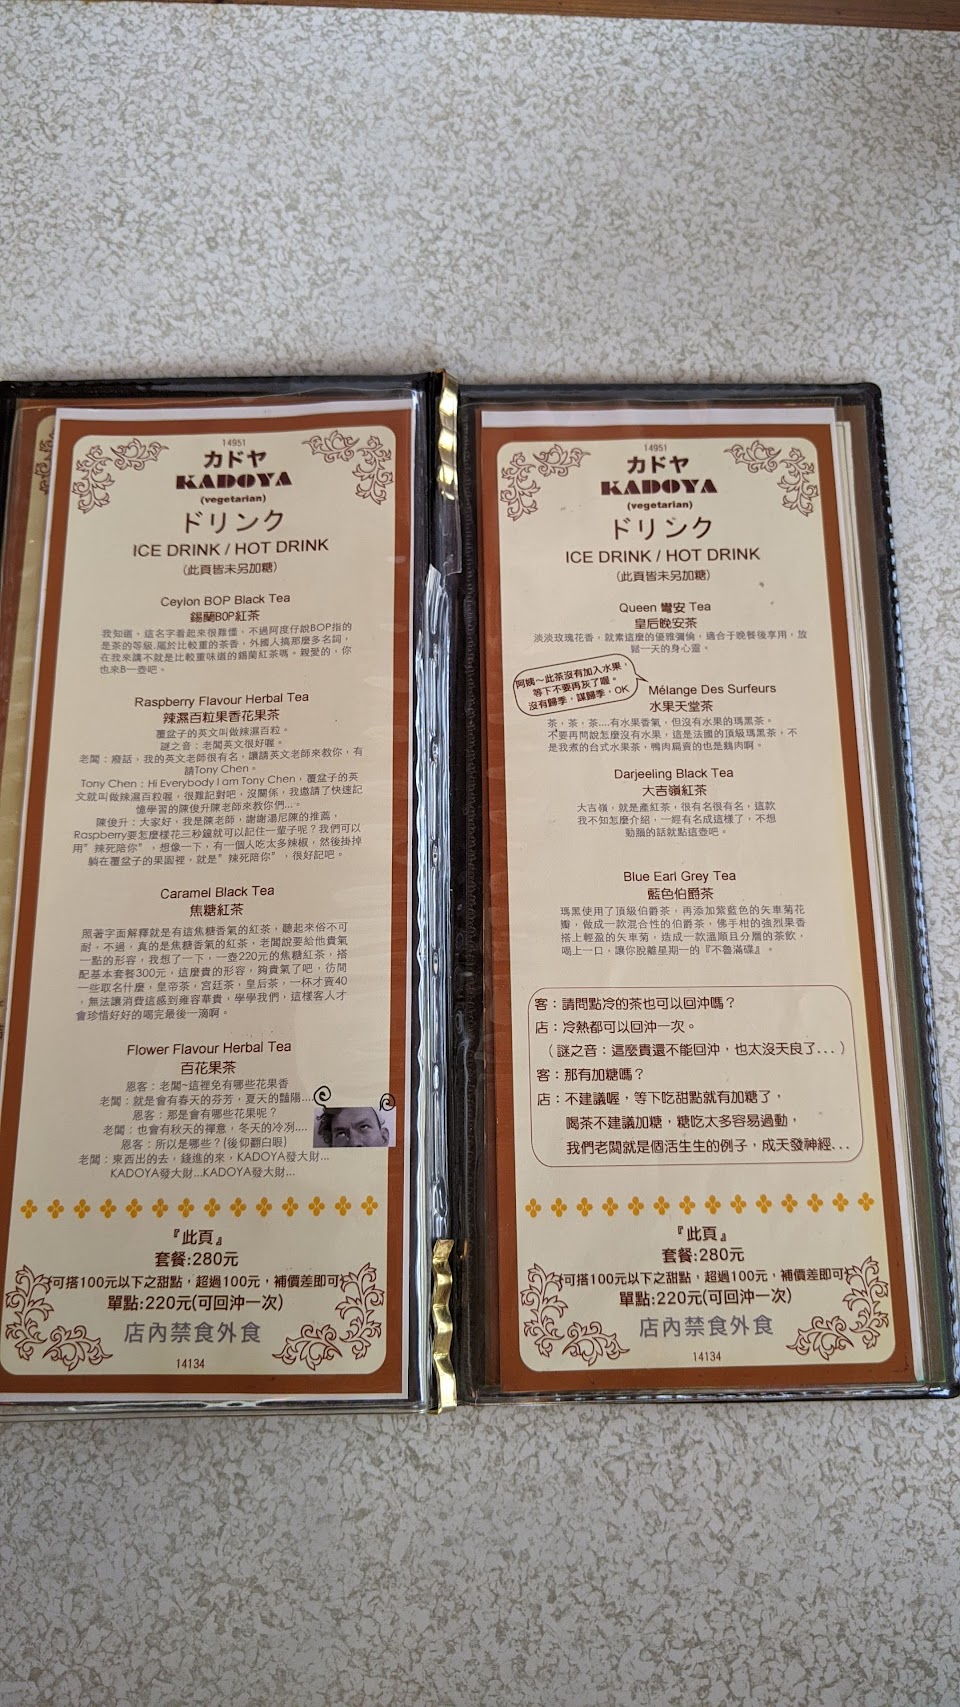 14951
カドヤ
KADOYA
(vegetarian)
ドリンク
ICE DRINK / HOT DRINK
(此頁皆未另加糖)
Ceylon BOP Black Tea
錫蘭BOP紅茶
我知道，這名字看起來很難懂，不過阿度仔說BOP指的
是茶的等級,屬於比較重的茶香，外國人搞那麼多名詞，
在我來講不就是比較重味道的錫蘭紅茶嗎。親愛的，你
也來B一壺吧。
Raspberry Flavour Herbal Tea
辣濕百粒果香花果茶
覆盆子的英文叫做辣濕百粒。
謎之音：老闆英文很好喔。
老闆：廢話，我的英文老師很有名，讓請英文老師來教你，有
請Tony Chen。
Tony Chen：Hi Everybody I am Tony Chen，覆盆子的英
文就叫做辣濕百粒喔，很難記對吧，沒關係，我邀請了快速記
憶學習的陳俊升陳老師來教你們....。
陳俊升：大家好，我是陳老師，謝謝湯尼陳的推薦，
Raspberry要怎麼樣花三秒鐘就可以記住一輩子呢？我們可以
用”辣死陪你”，想像一下，有一個人吃太多辣椒，然後掛掉
躺在覆盆子的果園裡，就是”辣死陪你”，很好記吧。
Caramel Black Tea
焦糖紅茶
照著字面解釋就是有這焦糖香氣的紅茶，聽起來俗不可
耐，不過，真的是焦糖香氣的紅茶，老闆說要給他貴氣
一點的形容，我想了一下，一壺220元的焦糖紅茶，搭
配基本套餐300元，這麼貴的形容，夠貴氣了吧，彷彿
一些取名什麼，皇帝茶，宮廷茶，皇后茶，一杯才賣40
，無法讓消費這感到雍容華貴，學學我們，這樣客人才
會珍惜好好的喝完最後一滴啊。
Flower Flavour Herbal Tea
百花果茶
恩客：老闆~這裡免有哪些花果香
老闆：就是會有春天的芬芳，夏天的豔陽....
恩客：那是會有哪些花果呢？
老闆：也會有秋天的禪意，冬天的冷冽....
恩客：所以是哪些？(後仰翻白眼)
老闆：東西出的去，錢進的來，KADOYA發大財...
KADOYA發大財...KADOYA發大財...
『此頁』
套餐:280元
可搭100元以下之甜點，超過100元，補價差即可
單點:220元(可回沖一次)
店內禁食外食
14134
14951
カドヤ
KADOYA
(vegetarian)
ドリンク
ICE DRINK / HOT DRINK
(此頁皆未另加糖)
Queen 彎安 Tea
皇后晚安茶
淡淡玫瑰花香，就素這麼的優雅彌倫，適合于晚餐後享用，放
鬆一天的身心靈。
阿姨～此茶沒有加入水果，
等下不要再灰了喔。
沒有歸季，謀歸季，OK
Mélange Des Surfeurs
水果天堂茶
茶，茶，茶....有水果香氣，但沒有水果的瑪黑茶。
不要再問說怎麼沒有水果，這是法國的頂級瑪黑茶，不
是我煮的台式水果茶，鴨肉扁賣的也是鵝肉啊。
Darjeeling Black Tea
大吉嶺紅茶
大吉嶺，就是產紅茶，很有名很有名，這款
我不知怎麼介紹，一經有名成這樣了，不想
動腦的話就點這壺吧。
Blue Earl Grey Tea
藍色伯爵茶
瑪黑使用了頂級伯爵茶，再添加紫藍色的矢車菊花
瓣，做成一款混合性的伯爵茶，佛手柑的強烈果香
搭上輕盈的矢車菊，造成一款溫順且分層的茶飲，
喝上一口，讓你脫離星期一的『不魯滿碟』。
客：請問點冷的茶也可以回沖嗎？
店：冷熱都可以回沖一次。
（謎之音：這麼貴還不能回沖，也太沒天良了...）
客：那有加糖嗎？
店：不建議喔，等下吃甜點就有加糖了，
喝茶不建議加糖，糖吃太多容易過動，
我們老闆就是個活生生的例子，成天發神經...
『此頁』
套餐:280元
可搭100元以下之甜點，超過100元，補價差即可
單點:220元(可回沖一次)
店內禁食外食
14134